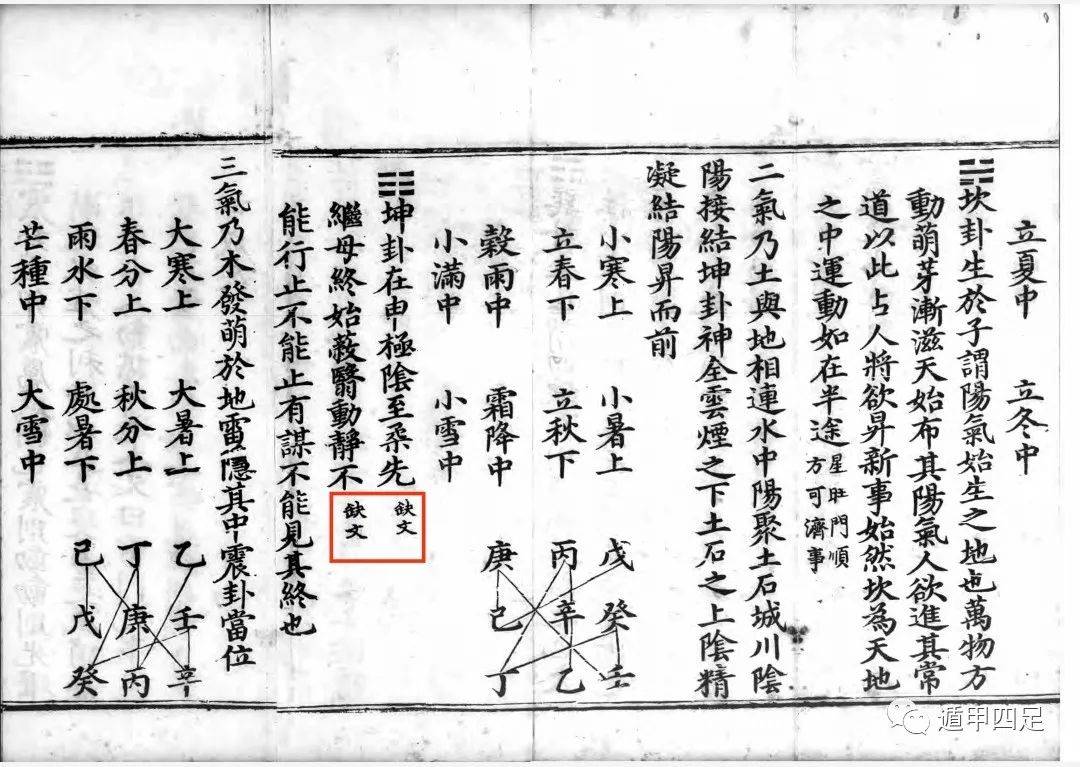 立夏中　立冬中
☵坎卦生於子謂陽氣始生之地也萬物方
動萌芽漸滋天始布其陽氣人欲進其常
道以此占人將欲昇新事始然坎為天地
之中運動如在半途星旺門順
方可濟事
二氣乃土與地相連水中陽聚土石城川陰
陽接結坤卦神全雲煙之下土石之上陰精
凝結陽昇而前
小寒上　小暑上　戊　癸　壬
立春下　立秋下　丙　辛　乙
穀雨中　霜降中　庚　己　丁
小滿中　小雪中
☷坤卦在申極陰至柔先缺文
繼母終始蔽翳動靜不缺文
能行止不能止有謀不能見其終也
三氣乃木發萌於地雷隱其中震卦當位
大寒上　大暑上　乙　壬　辛
春分上　秋分上　丁　庚　丙
雨水下　處暑下　己　戊　癸
芒種中　大雪中
遁甲四足